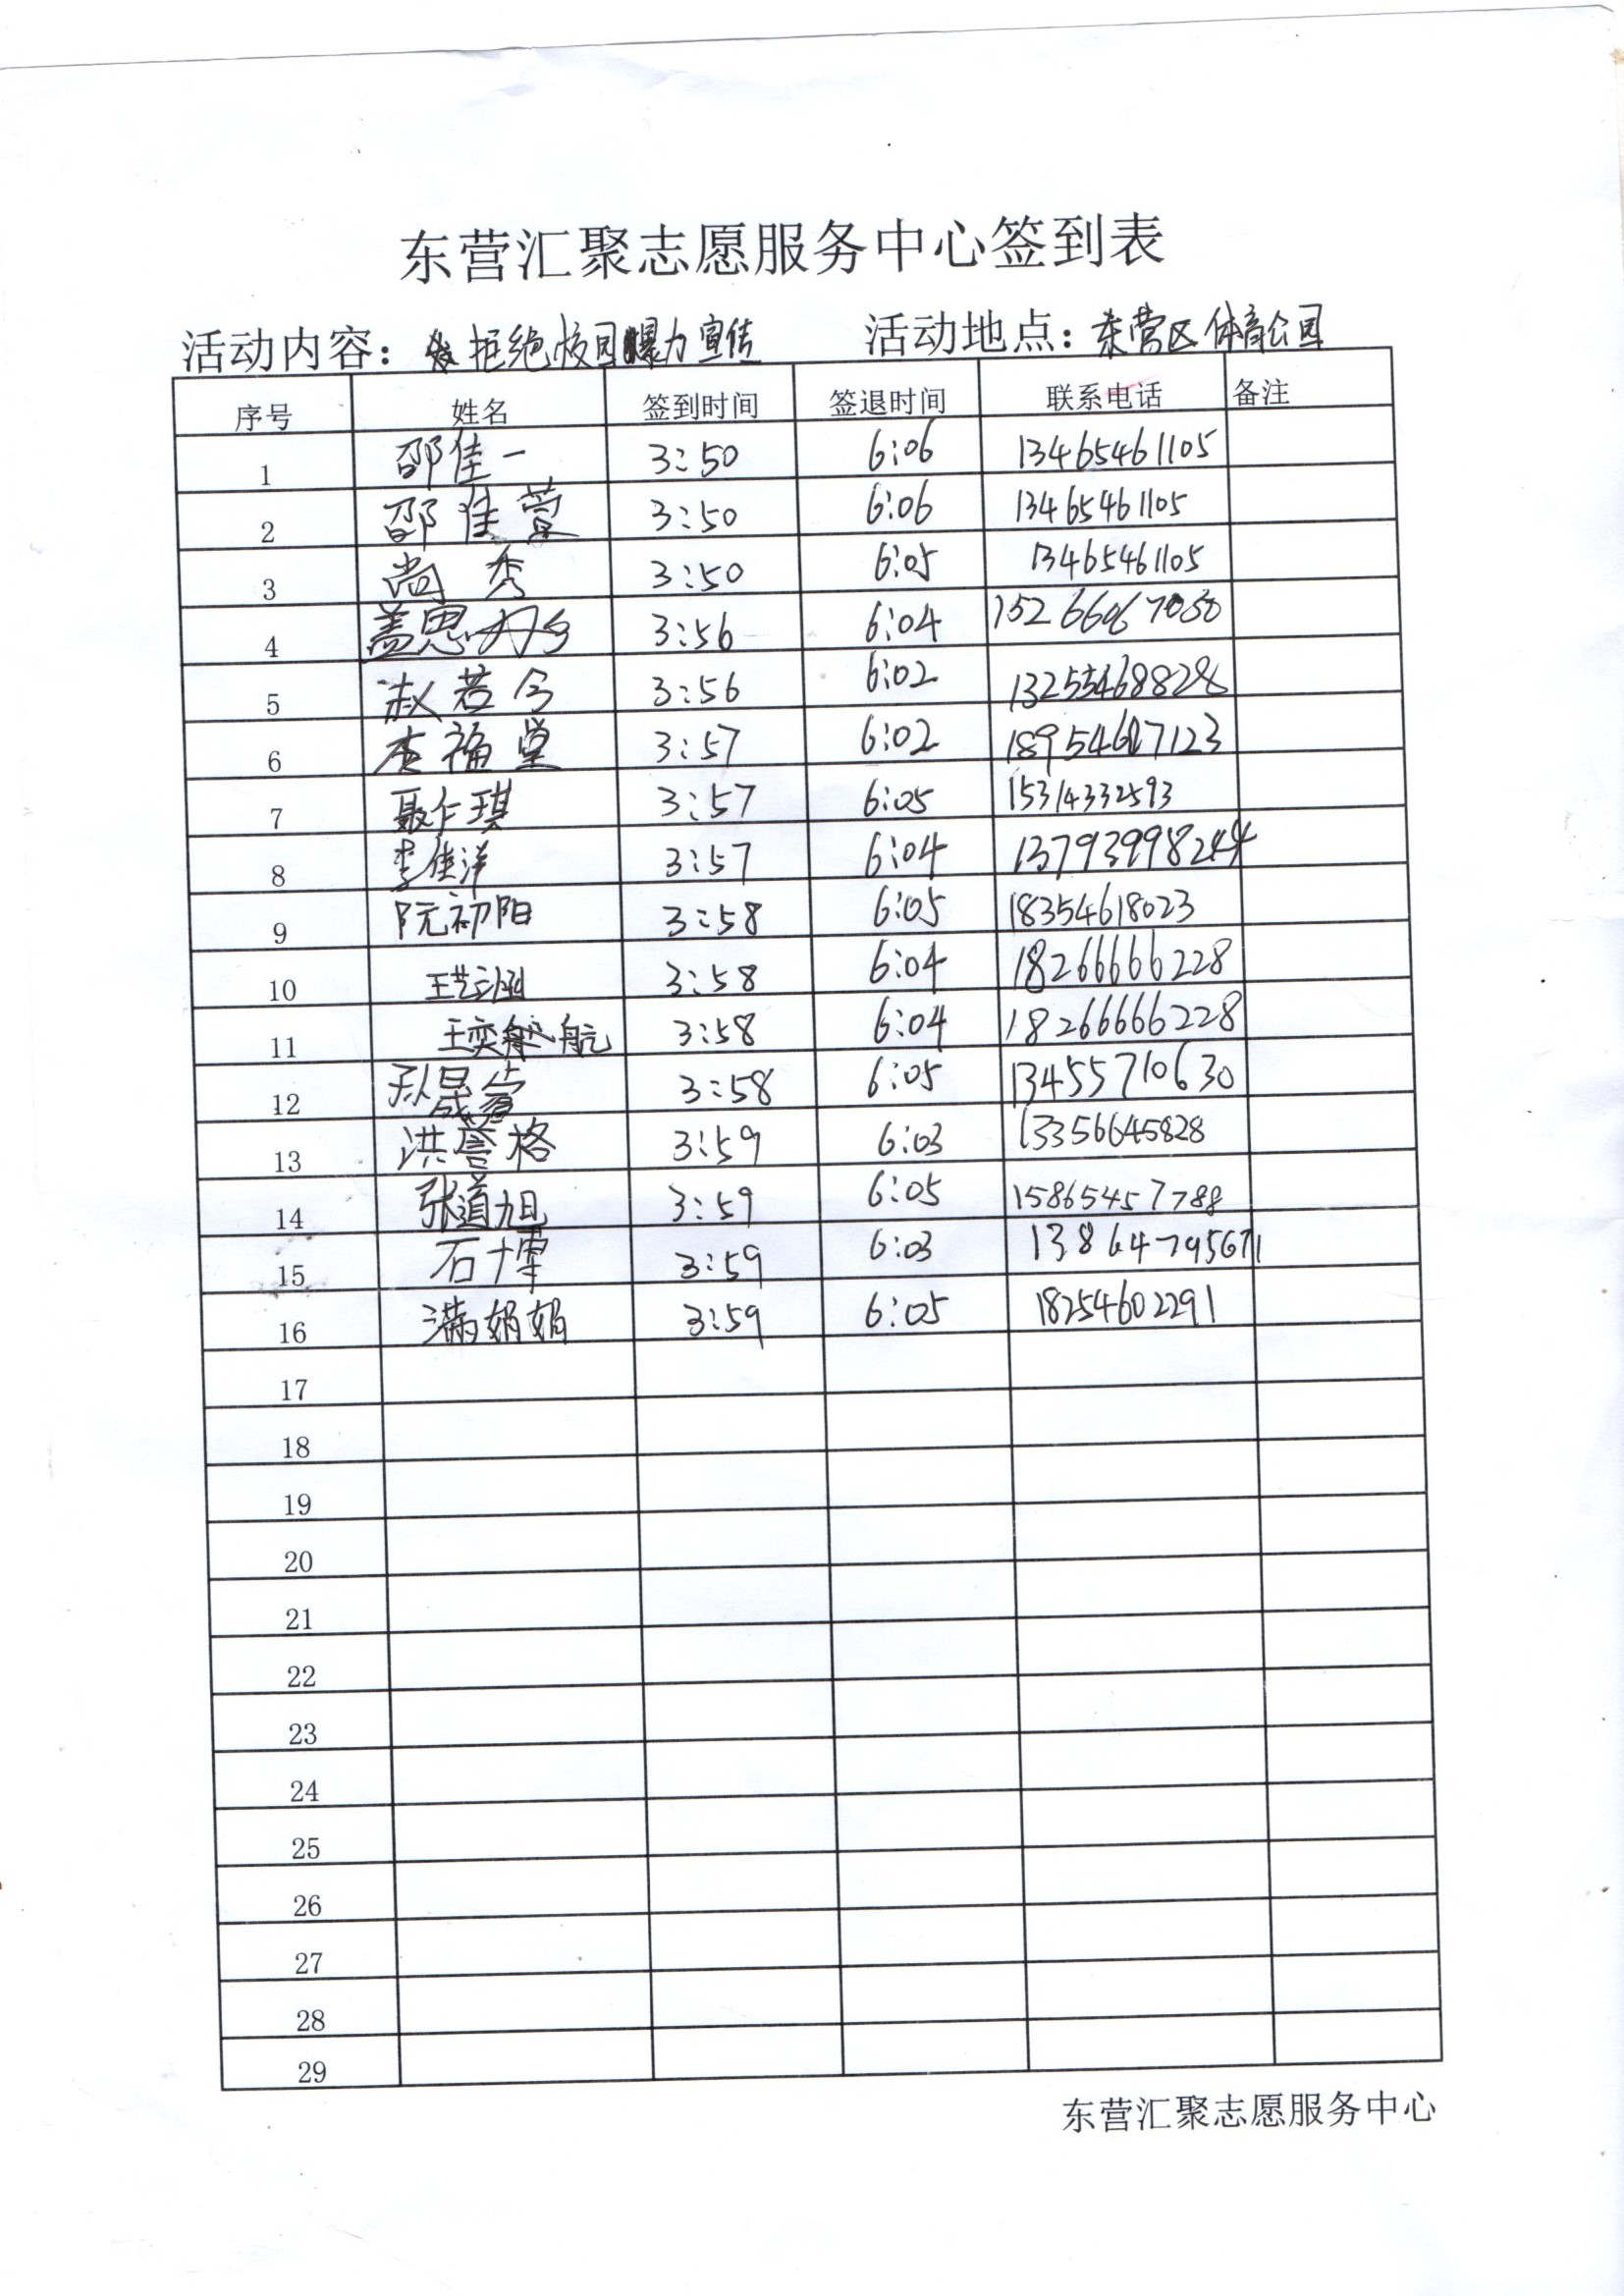 东营汇聚志愿服务中心签到表
活动内容：拒绝校园暴力宣传 活动地点：东营区体育公园
序号 姓名 签到时间 签退时间 联系电话 备注
1 邵佳一 3:50 6:06 13465461105
2 邵佳萱 3:50 6:06 13465461105
3 尚秀 3:50 6:05 13465461105
4 盖思 3:56 6:04
5 赵若兮 3:56 6:02 13255468828
6 李福堂 3:57 6:02
7 聂仁琪 3:57 6:05 15314332593
8 李佳洋 3:57 6:04 13793998244
9 阮初阳 3:58 6:05 18354618023
10 王艺涵 3:58 6:04 18266666228
11 王奕航 3:58 6:04 18266666228
12 3:58 6:05 13455710630
13 洪誉格 3:59 6:03 13356645828
14 张道旭 3:59 6:05 15865457788
15 石博 3:59 6:03
16 满娟娟 3:59 6:05 18254602291
17
18
19
20
21
22
23
24
25
26
27
28
29
东营汇聚志愿服务中心